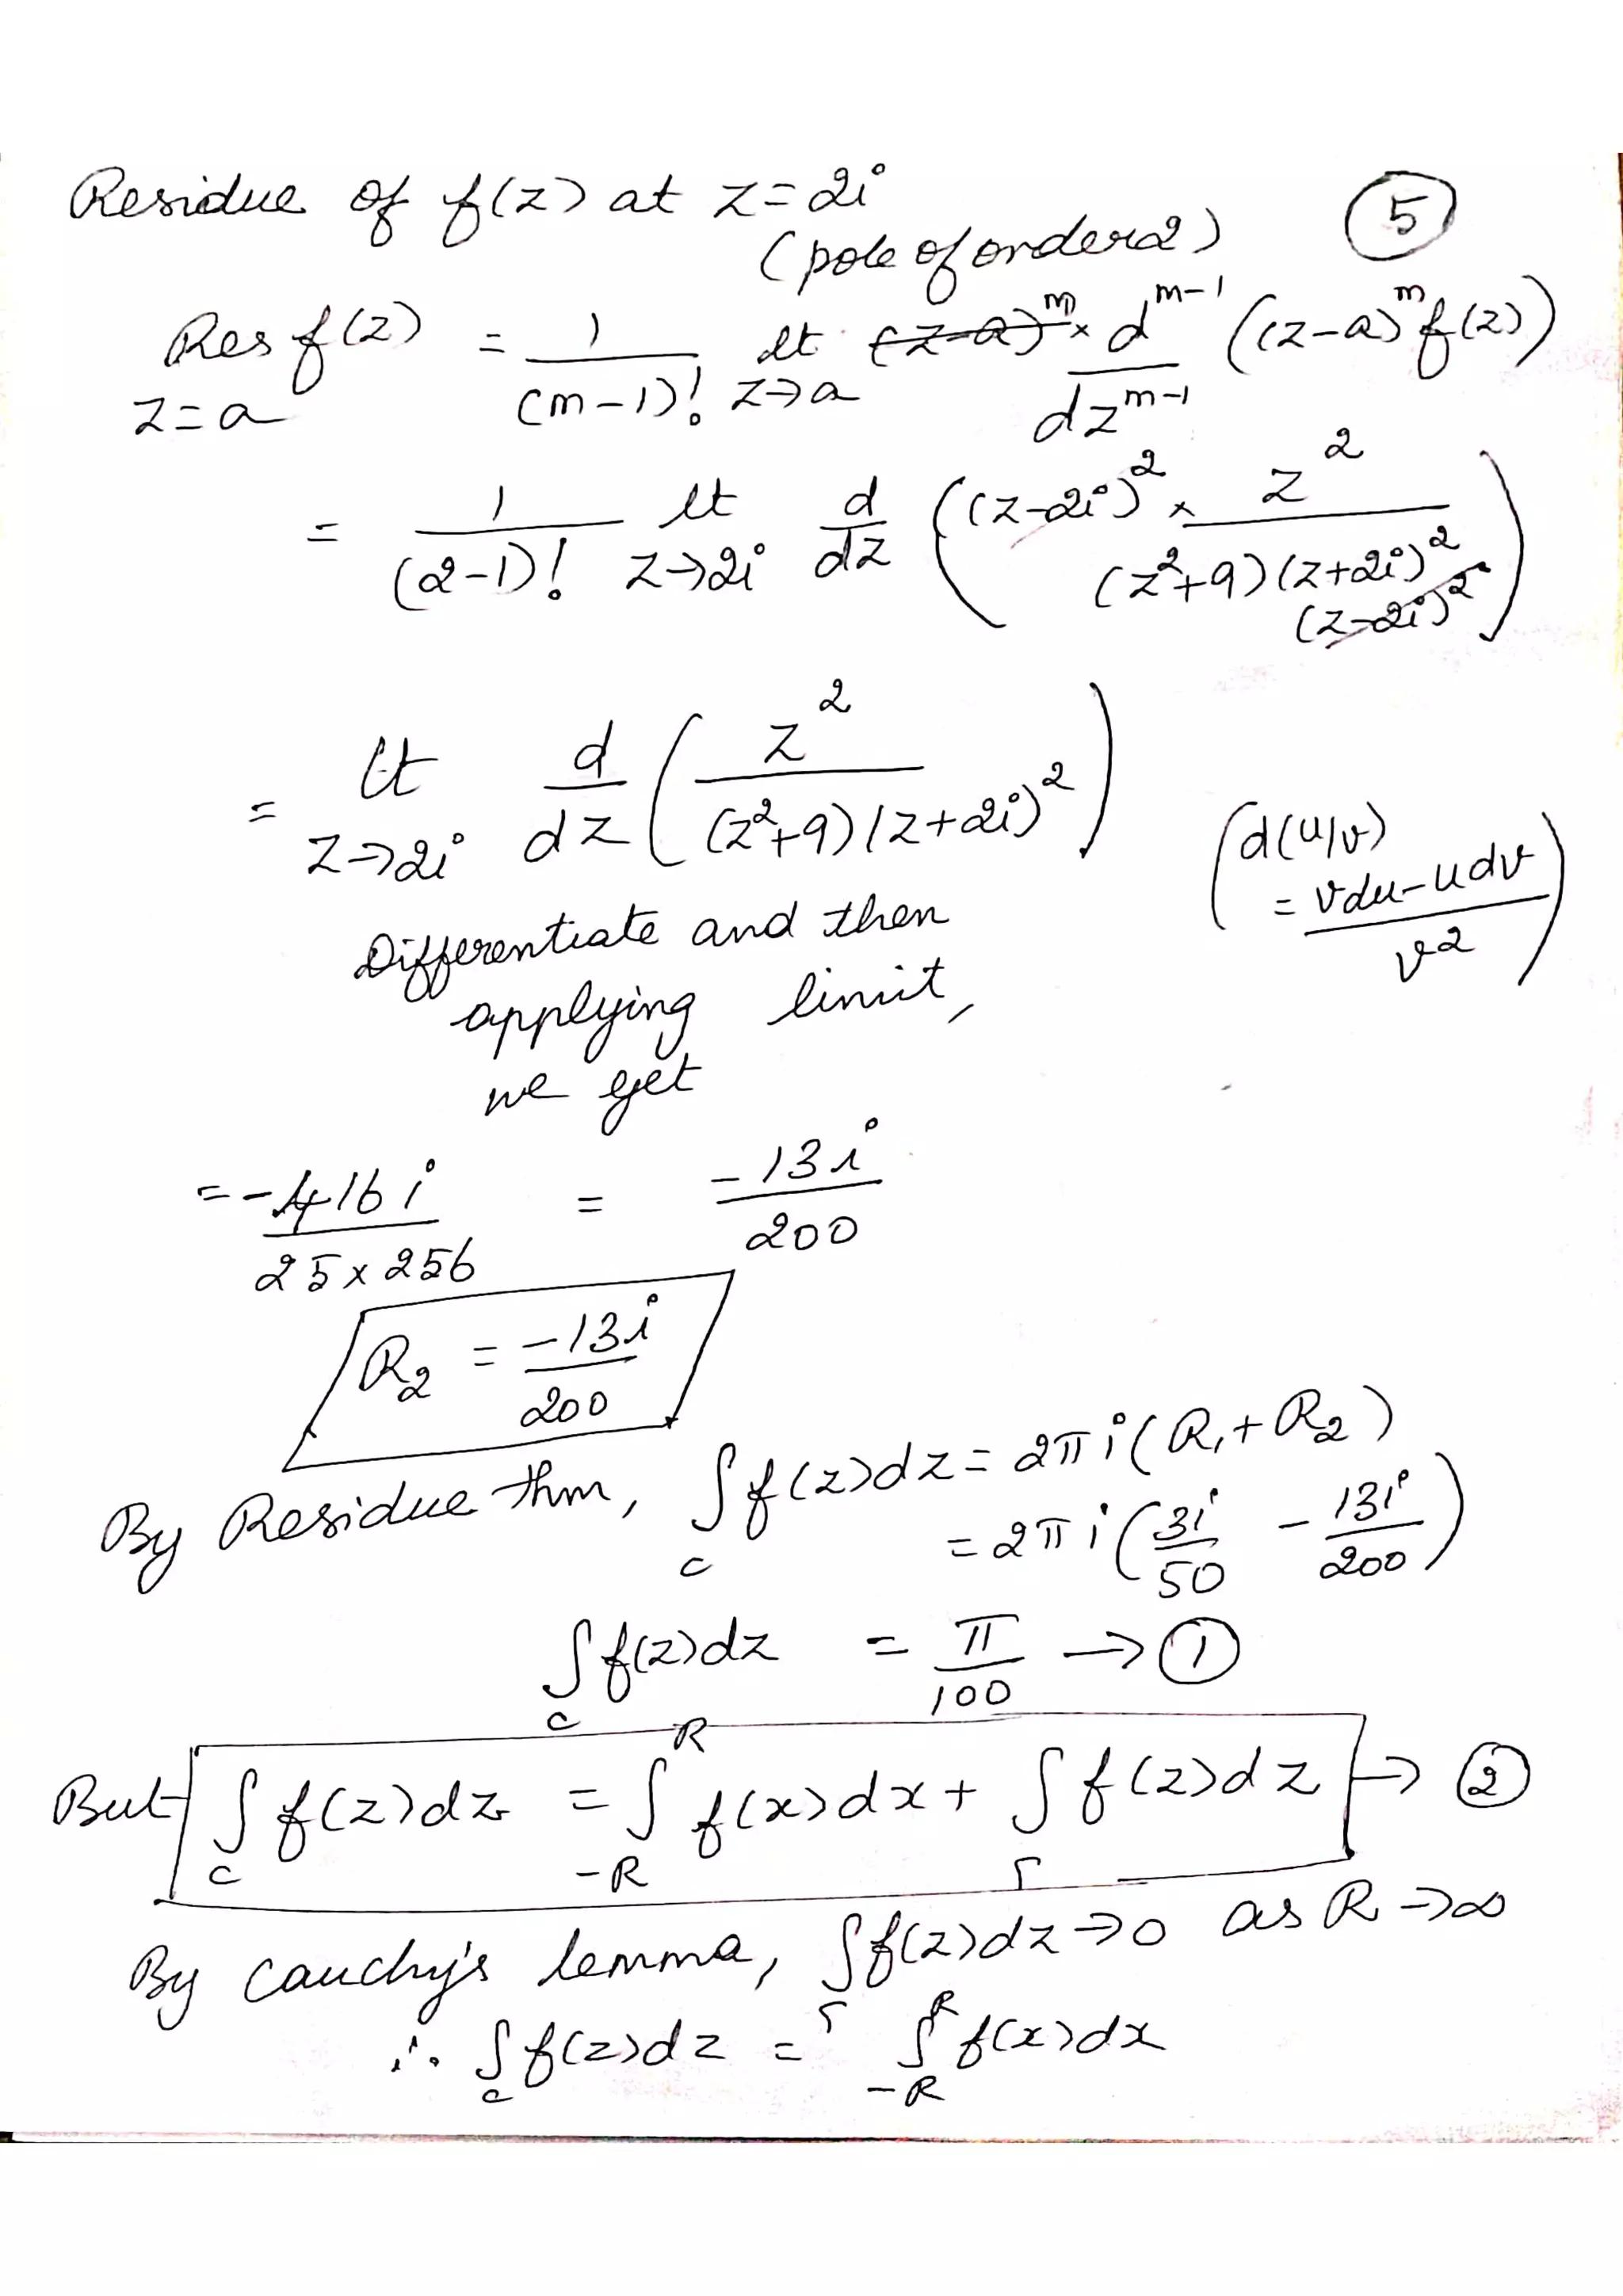 Residue of f(z) at z=2i
(5)
(pole of order 2)
Res f(z) = 1/(m-1)! lt (z-a)^m × d^(m-1)/dz^(m-1) ((z-a)^m f(z))
z=a z→a
= 1/(2-1)! lt z→2i d/dz ((z-2i)^2 × z^2/((z^2+9)(z+2i)^2 (z-2i)^2))
= lt z→2i d/dz (z^2/((z^2+9)(z+2i)^2))
(d(u/v)
= (vdu-udv)/v^2)
Differentiate and then
applying limit,
we get
= -416i/(25×256) = -13i/200
R2 = -13i/200
By Residue thm, ∫_c f(z)dz = 2πi(R1+R2)
= 2πi(3i/50 - 13i/200)
∫_c f(z)dz = π/100 → (1)
But ∫_c f(z)dz = ∫_-R^R f(x)dx + ∫_Γ f(z)dz → (2)
By Cauchy's lemma, ∫_Γ f(z)dz→0 as R→∞
∴ ∫_c f(z)dz = ∫_-R^R f(x)dx